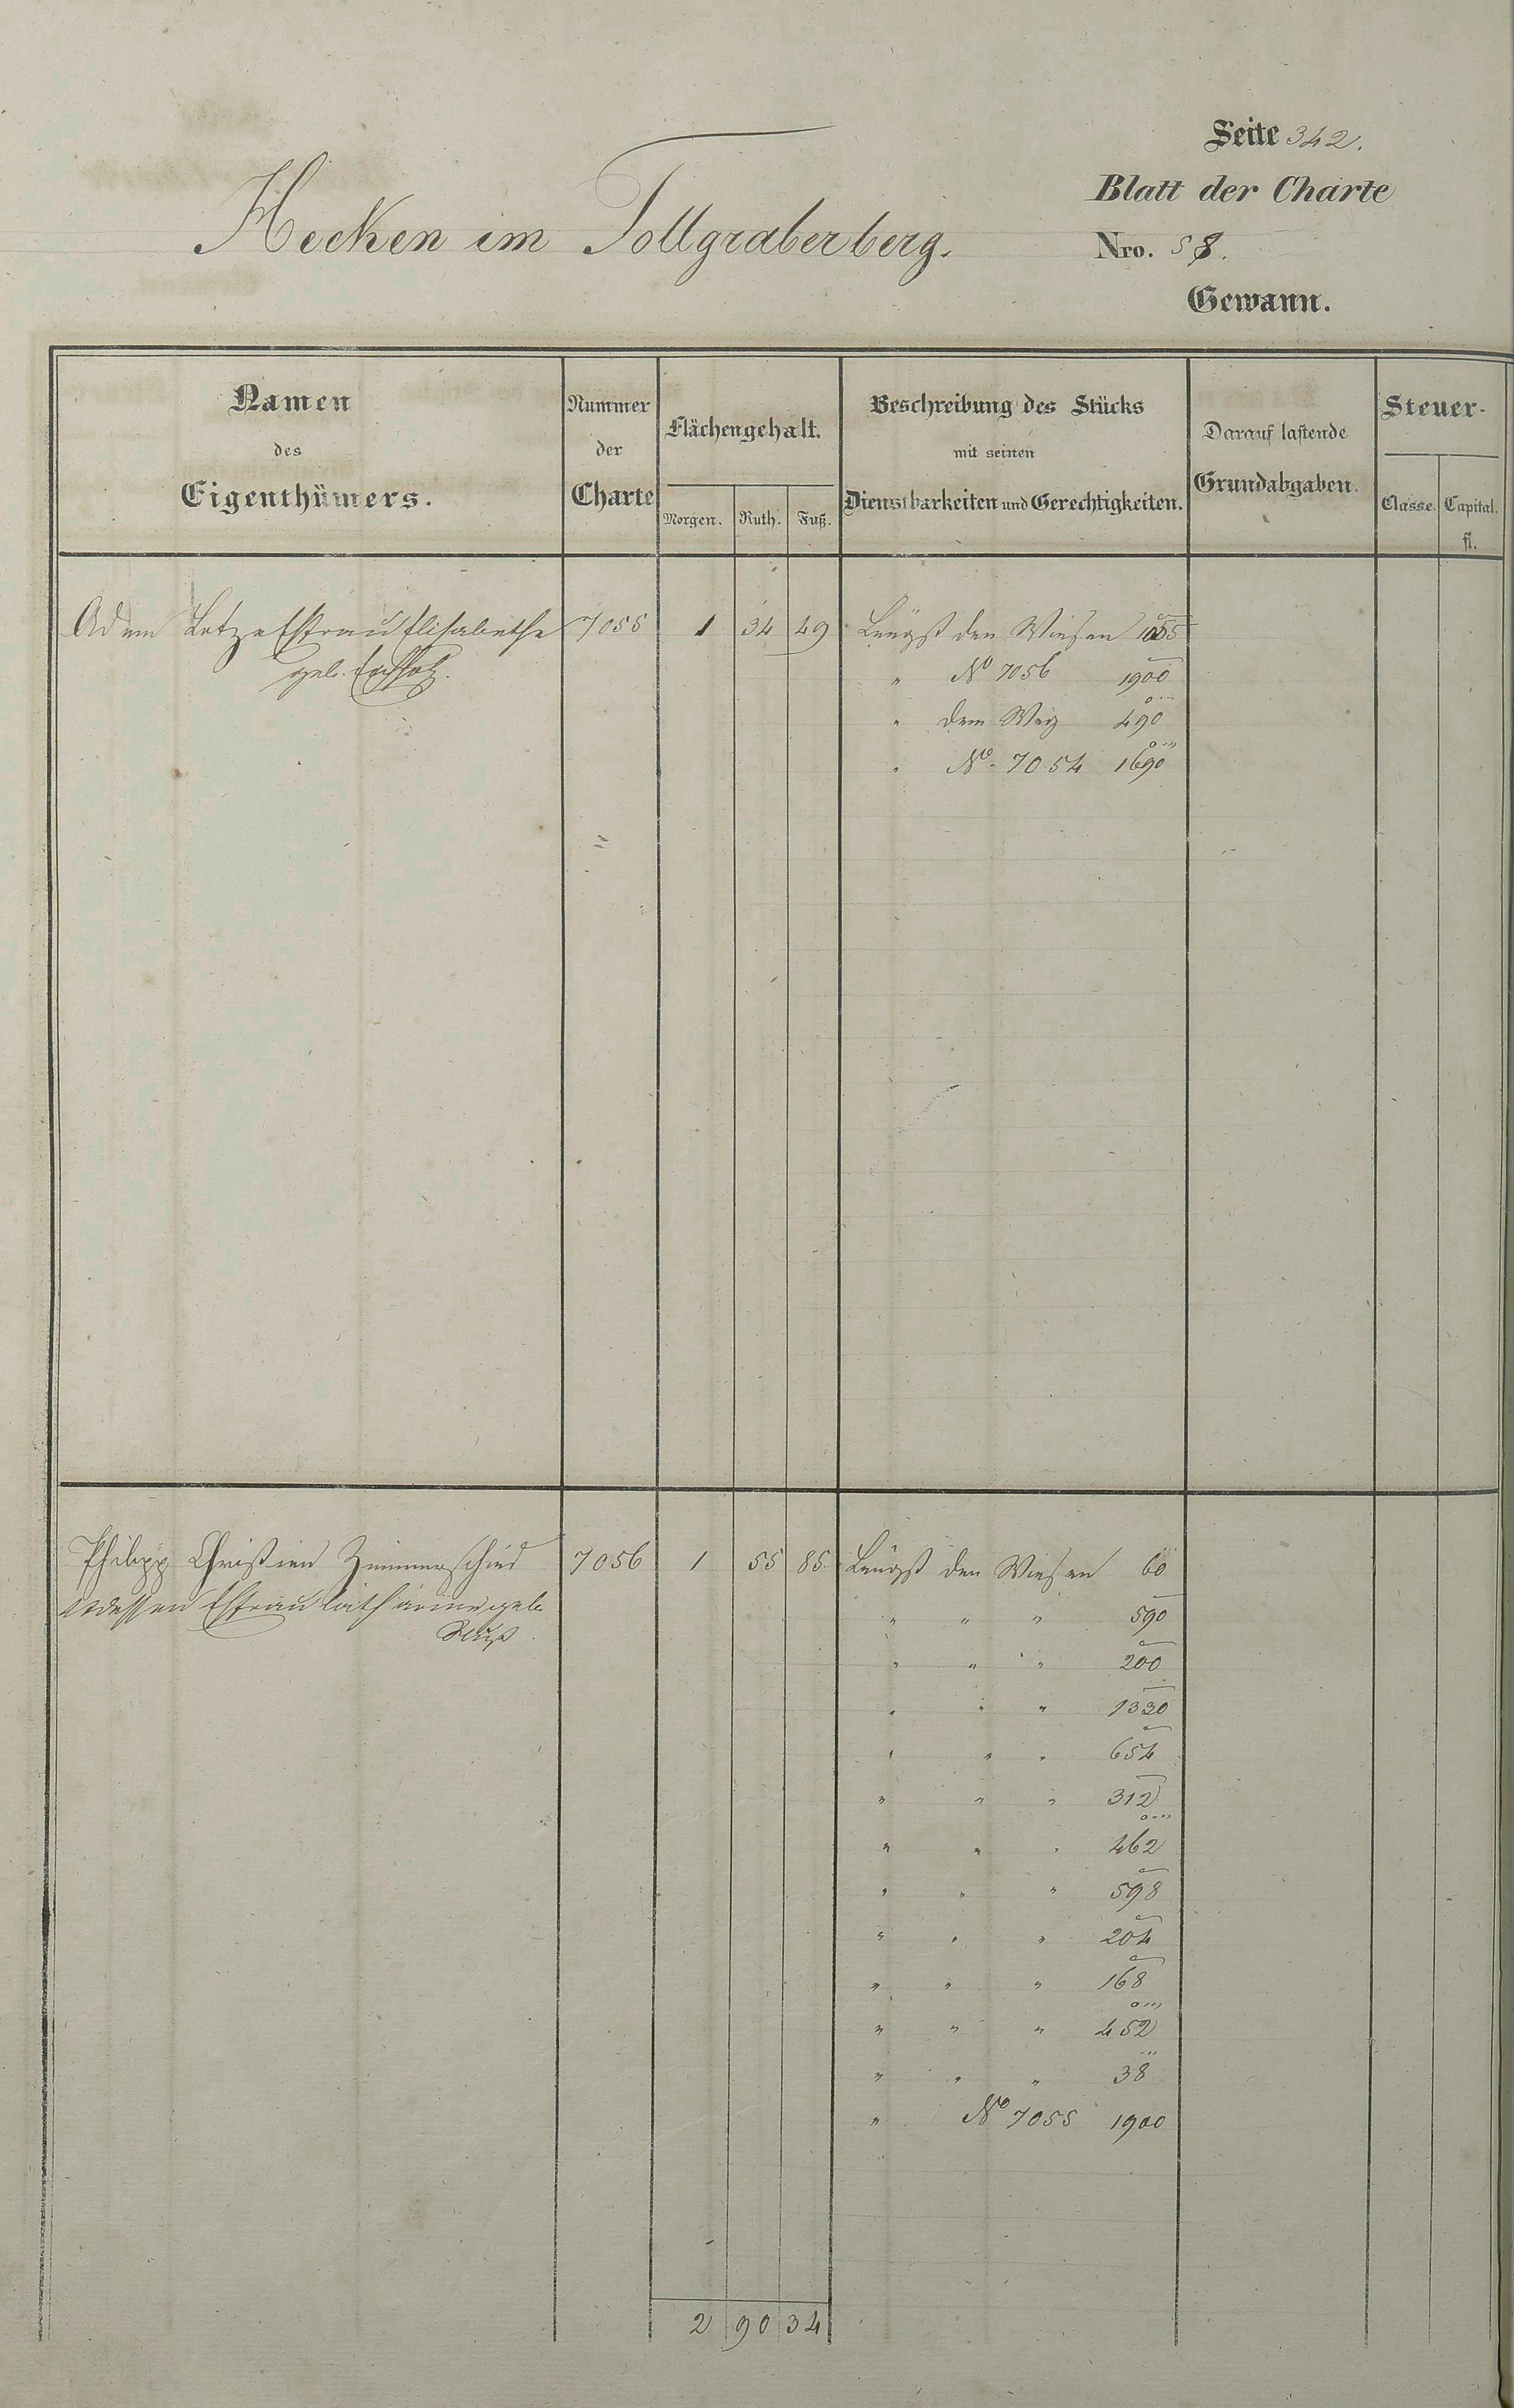 Seite 342.
Blatt der Charte
Hecken im Tollgraberberg.
Nro. 58.
Gewann.
Namen des Eigenthümers.
Nummer der Charte
Flächengehalt.
Morgen. Ruth. Fuß.
Beschreibung des Stücks
mit seinen
Dienstbarkeiten und Gerechtigkeiten.
Darauf lastende
Grundabgaben.
Steuer-
Classe. Capital.
fl.
Adam Letze Ehfrau Elisabetha 7055 1 34 49 Längst den Wiesen 1055
geb.
" No 7056 1900
" dem Weg 490
" No. 7054 1690
Philipp Christian Zimmerschied 7056 1 55 85 Längst den Wiesen 60
u dessen Ehfrau Catharine geb.
" " " 590
" " " 200
" " " 1330
" " " 654
" " " 312
" " " 462
" " " 598
" " " 204
" " " 168
" " " 452
" " " 38
" No 7055 1900
2 90 34